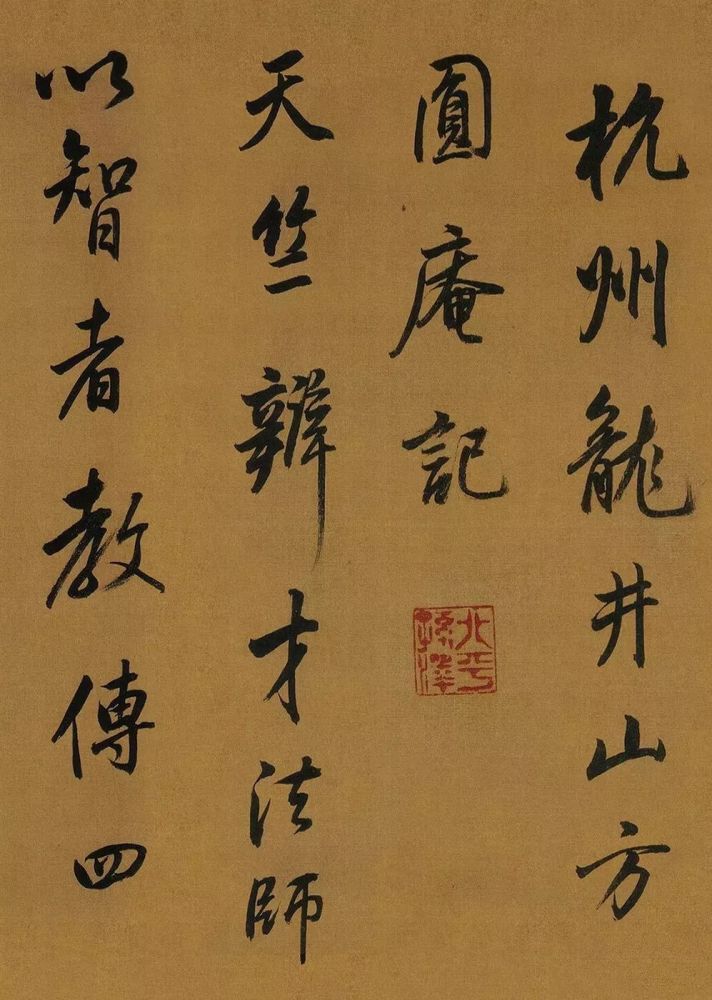 杭州龍井山方
圓庵記
天竺辯才法師
以智者教傳四
北平孫氏